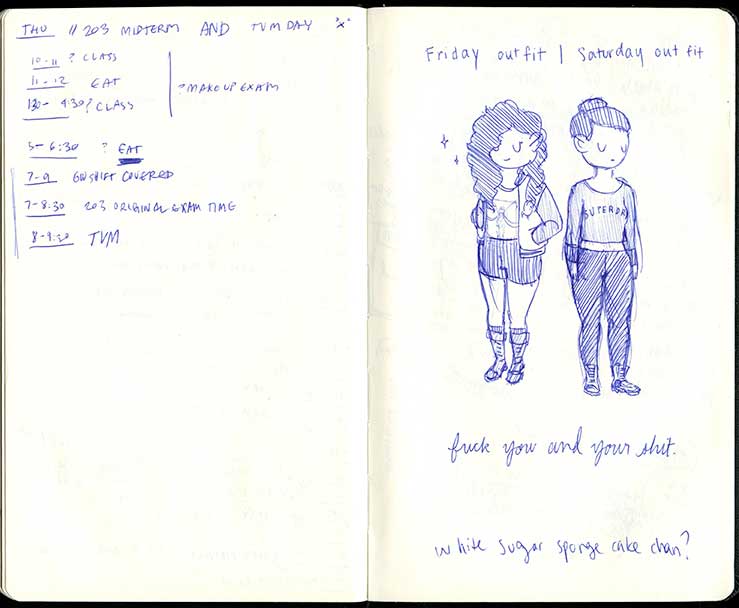 THU // 203 MIDTERM AND TVM DAY "x"
10-11 ? CLASS
11-12 EAT
130-4:30? CLASS
? MAKEUP EXAM
5-6:30 ? EAT
7-9 SHIFT COVERED
7-8:30 203 ORIGINAL EXAM TIME
8-9:30 TVM
Friday outfit | Saturday outfit
SUTERDAY
fuck you and your shit.
white sugar sponge cake chan?